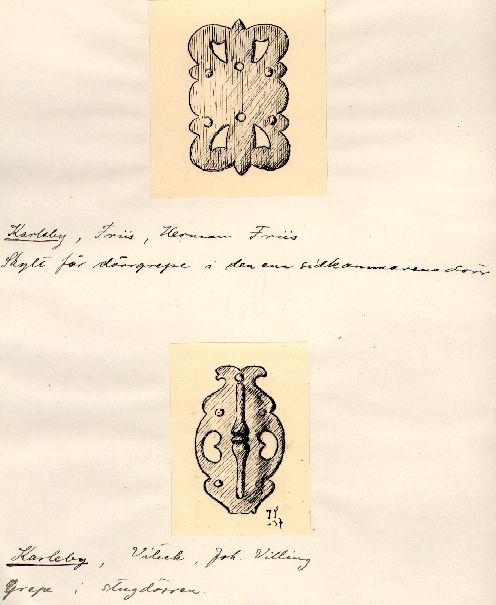 Karleby, Friis, Herman Friis
Skylt för dörrgrepe i den ena sidkammarens dörr
-37
Karleby, Joh. Villing
Grepe i stugdörren.